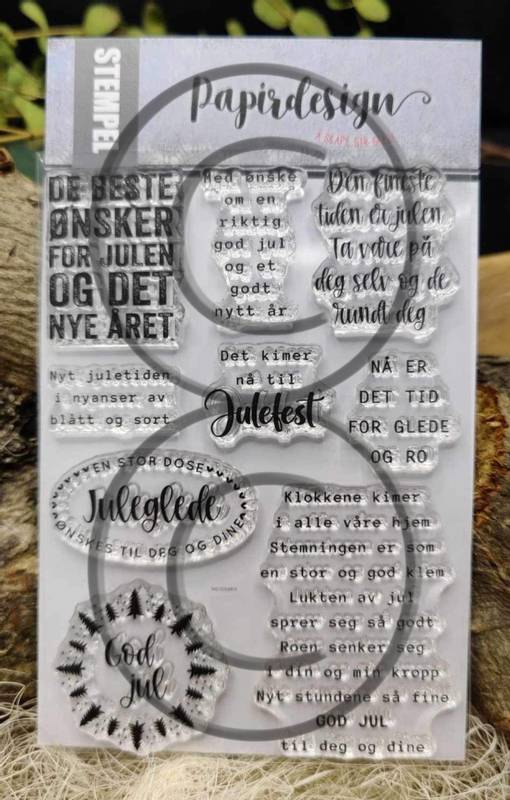 STEMPEL
Papirdesign
DE BESTE
ØNSKER
FOR JULEN
OG DET
NYE ÅRET
Med ønske
om en
riktig
god jul
og et
godt
nytt år
Den fineste
tiden er julen
Ta vare på
deg selv og de
rundt deg
Nyt juletiden
i nyanser av
blått og sort
Det kimer
nå til
Julefest
NÅ ER
DET TID
FOR GLEDE
OG RO
EN STOR DOSE
Juleglede
ØNSKES TIL DEG OG DINE
Klokkene kimer
i alle våre hjem
Stemningen er som
en stor og god klem
Lukten av jul
sprer seg så godt
Roen senker seg
i din og min kropp
Nyt stundene så fine
GOD JUL
til deg og dine
God
jul